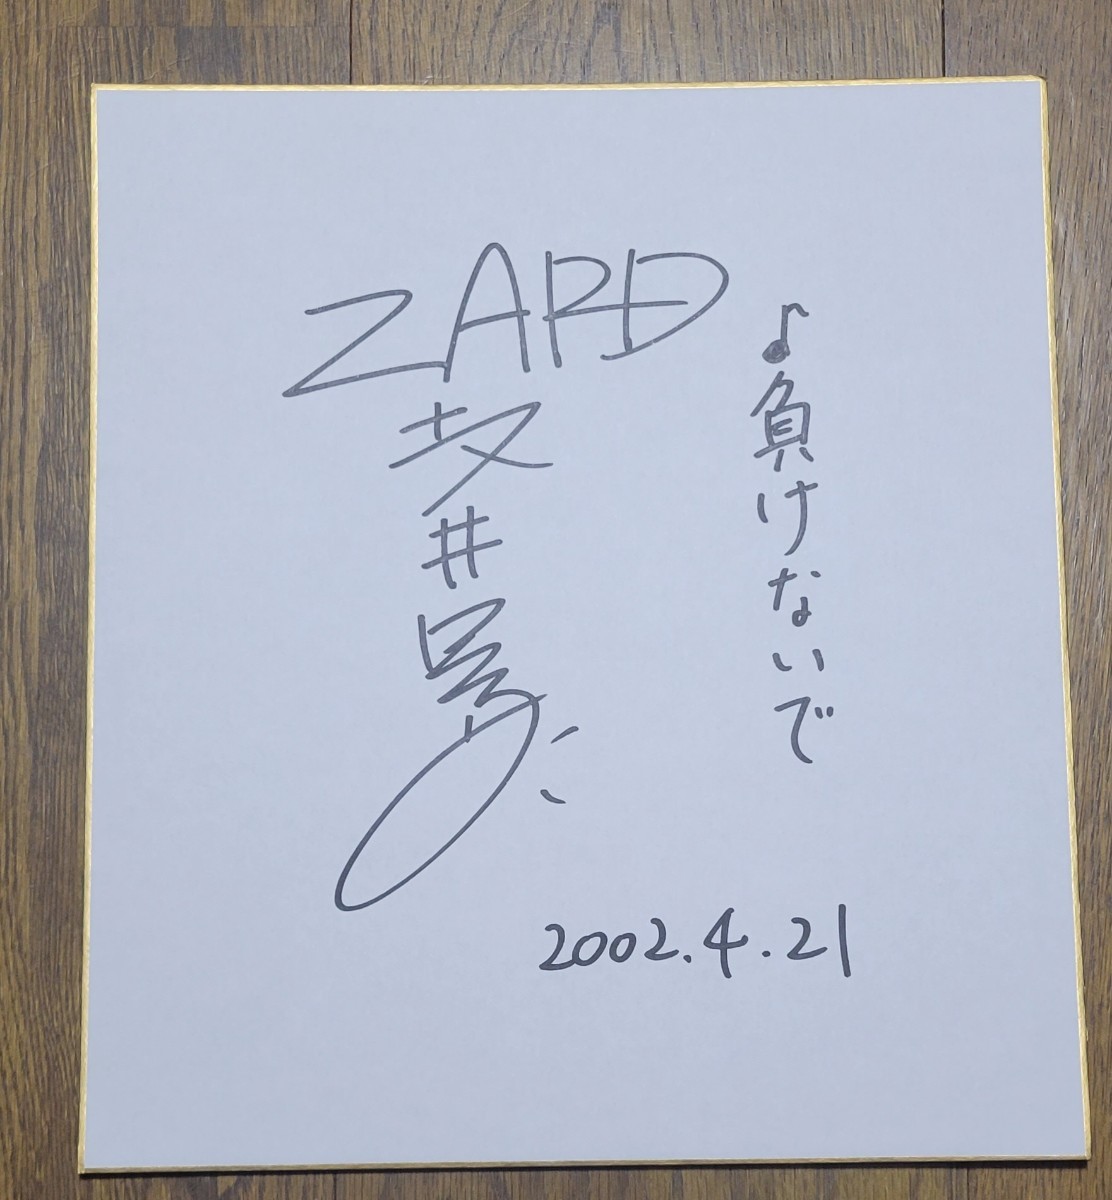 ♪負けないで
ZARD
坂井泉水
2002.4.21